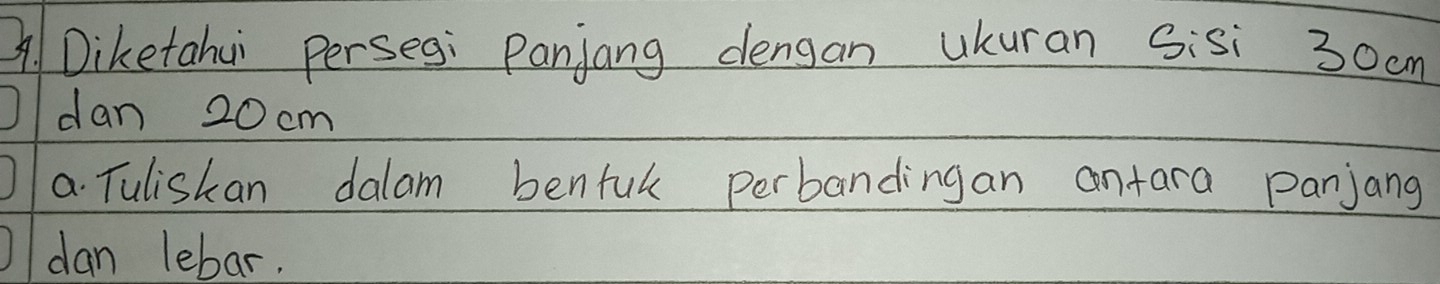 4. Diketahui persegi panjang dengan ukuran sisi 30cm
dan 20cm
a. Tuliskan dalam bentuk perbandingan antara panjang
dan lebar.